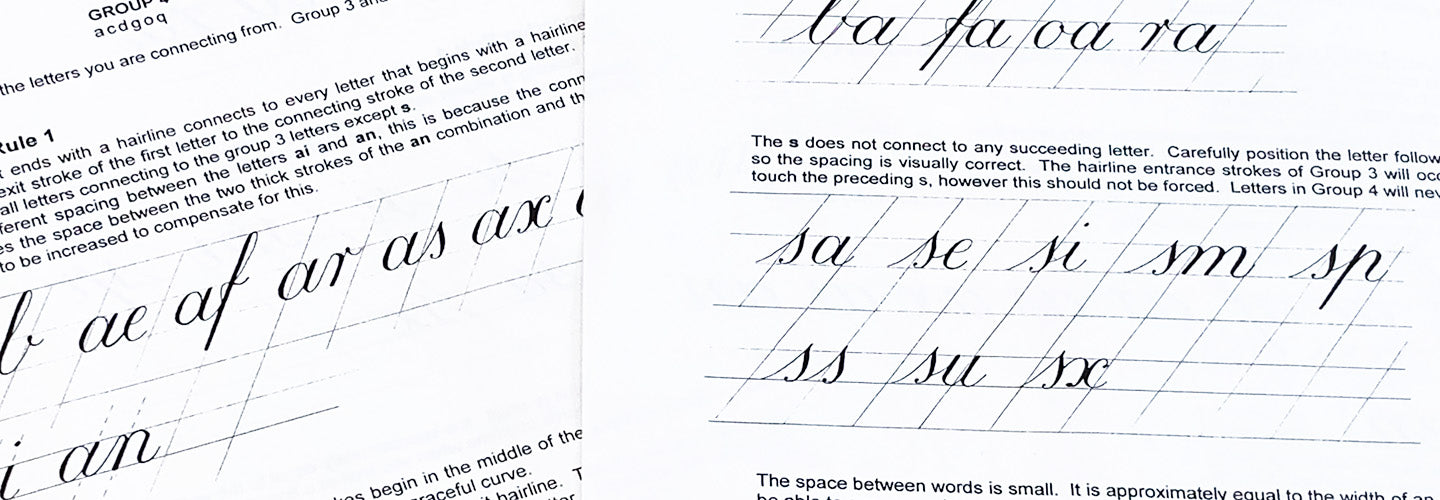 GROUP
a c d g o q
the letters you are connecting from. Group 3
Rule 1
ends with a hairline connects to every letter that begins with a hairline
exit stroke of the first letter to the connecting stroke of the second letter.
all letters connecting to the group 3 letters except s.
spacing between the letters ai and an, this is because the
the space between the two thick strokes of the an combination and
to be increased to compensate for this.
b ae af ar as ax
i an
begin in the middle of the
curve.
hairline.
ba fa oa ra
The s does not connect to any succeeding letter. Carefully position the letter
so the spacing is visually correct. The hairline entrance strokes of Group 3 will
touch the preceding s, however this should not be forced. Letters in Group 4 will
sa se si sm sp
ss su sx
The space between words is small. It is approximately equal to the width of